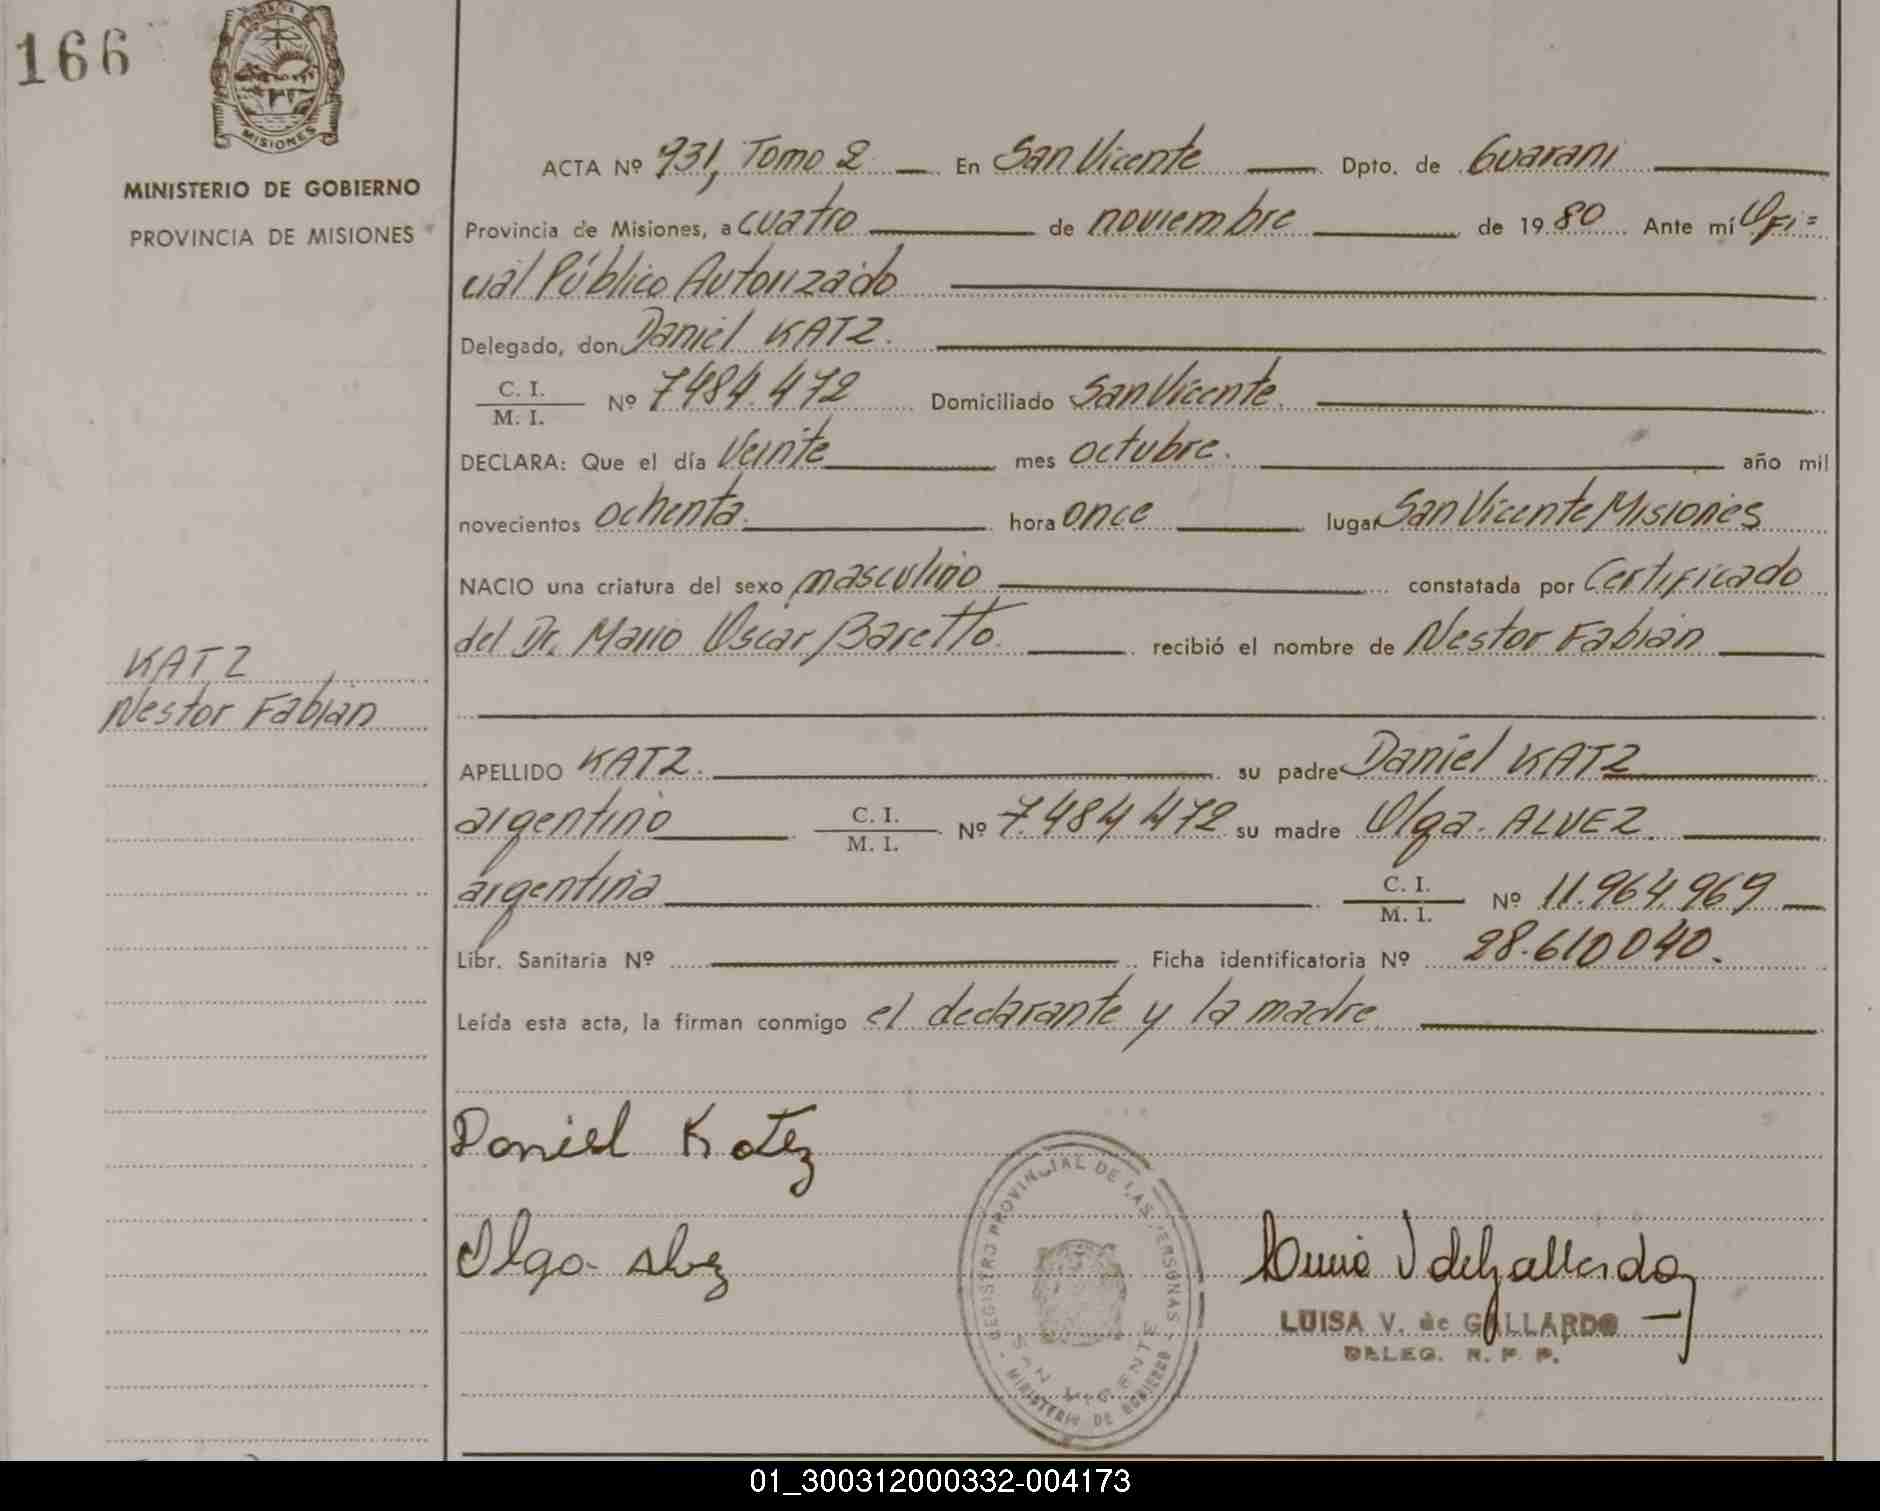 166
MISIONES
MINISTERIO DE GOBIERNO
PROVINCIA DE MISIONES
KATZ
Nestor Fabián
ACTA Nº 931, Tomo 2 En San Vicente Dpto. de Guaraní
Provincia de Misiones, a cuatro de noviembre de 1980 Ante mí Ofi=
cial Público Autorizado
Delegado, don Daniel KATZ.
C. I.
M. I. Nº 7484.472 Domiciliado San Vicente.
DECLARA: Que el día Veinte mes octubre. año mil
novecientos ochenta. hora once lugar San Vicente Misiones
NACIO una criatura del sexo masculino constatada por Certificado
del Dr. Mario Oscar Baretto. recibió el nombre de Nestor Fabián
APELLIDO KATZ. su padre Daniel KATZ
argentino C. I.
M. I. Nº 7.484.472 su madre Olga ALVEZ.
argentina C. I.
M. I. Nº 11.964.969
Libr. Sanitaria Nº Ficha identificatoria Nº 28.610040.
Leída esta acta, la firman conmigo el declarante y la madre
Daniel Katz
Olga Alvez
REGISTRO PROVINCIAL DE LAS PERSONAS
SAN VICENTE
MINISTERIO DE GOBIERNO
LUISA V. de GALLARDO
DELEG. R. P. P.
01_300312000332-004173